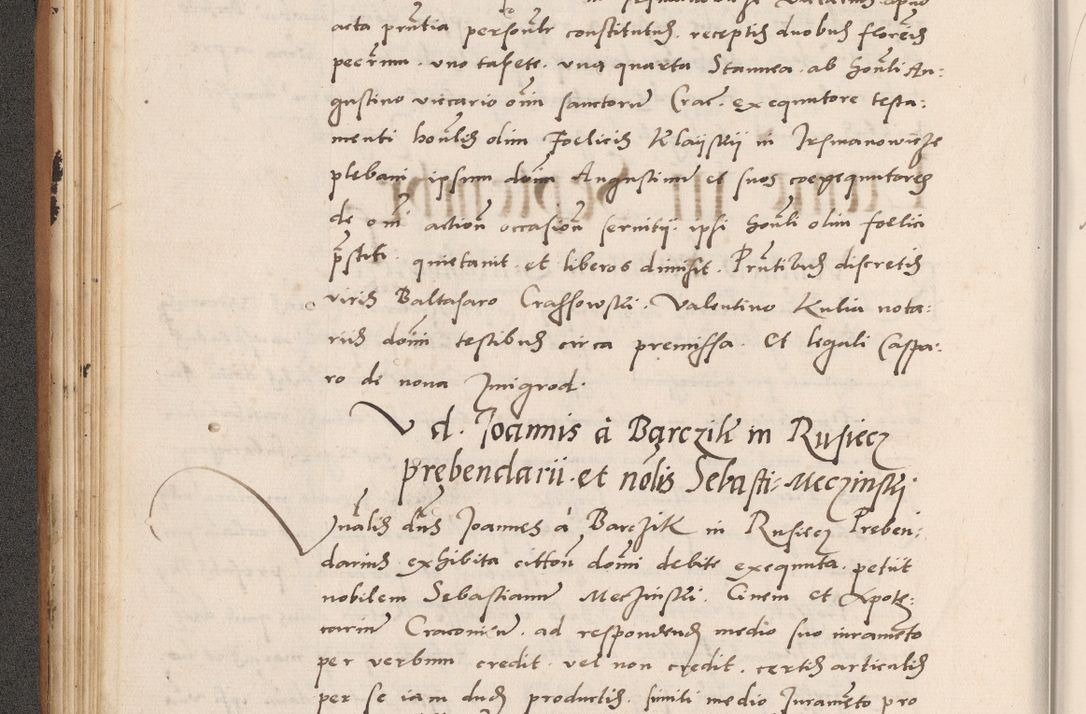 acta prñtia persoñlr constitutus receptis duobus florenis
pecc̃rinu. uno tasete. una quarta Stamea. ab hoñli Au-
gustino vicario om̃ sanctorũ Crac. exequutore testa-
menti hoñlis olim Foelicis Klaysstÿ in Irsmanowicze
plebani ipsum dom̃ Augustinũ et suos coexequutores
de om̃i actioñ occasioñ servitij ipsi hoñli olim foelici
p̃stiti. quietavit et liberos dimisit. Prñtibus discretis
viris Baltasaro Crassowski. Valentino Kulia nota-
riis dom̃i testibus circa premissa. Et legali Caspa-
ro de nova Jmigrod.
V d. Joannis à Barczik in Rusiecz
prębendarii et nob̃lis Sebasti. Meczinskj.
Vñalis dñs Joannes à Barczik in Rusiecz Preben-
darius exhibita citt̃oñ dom̃i debite exequuta. petiit
nobilem Sebastianum Meczinski. Civem et Apote-
carium Craconieñ. ad respondendũ medio suo iuramẽto
per verbum credit. vel non credit. certis articulis
per se iam dudũ productis. simili medio Juramẽto pro